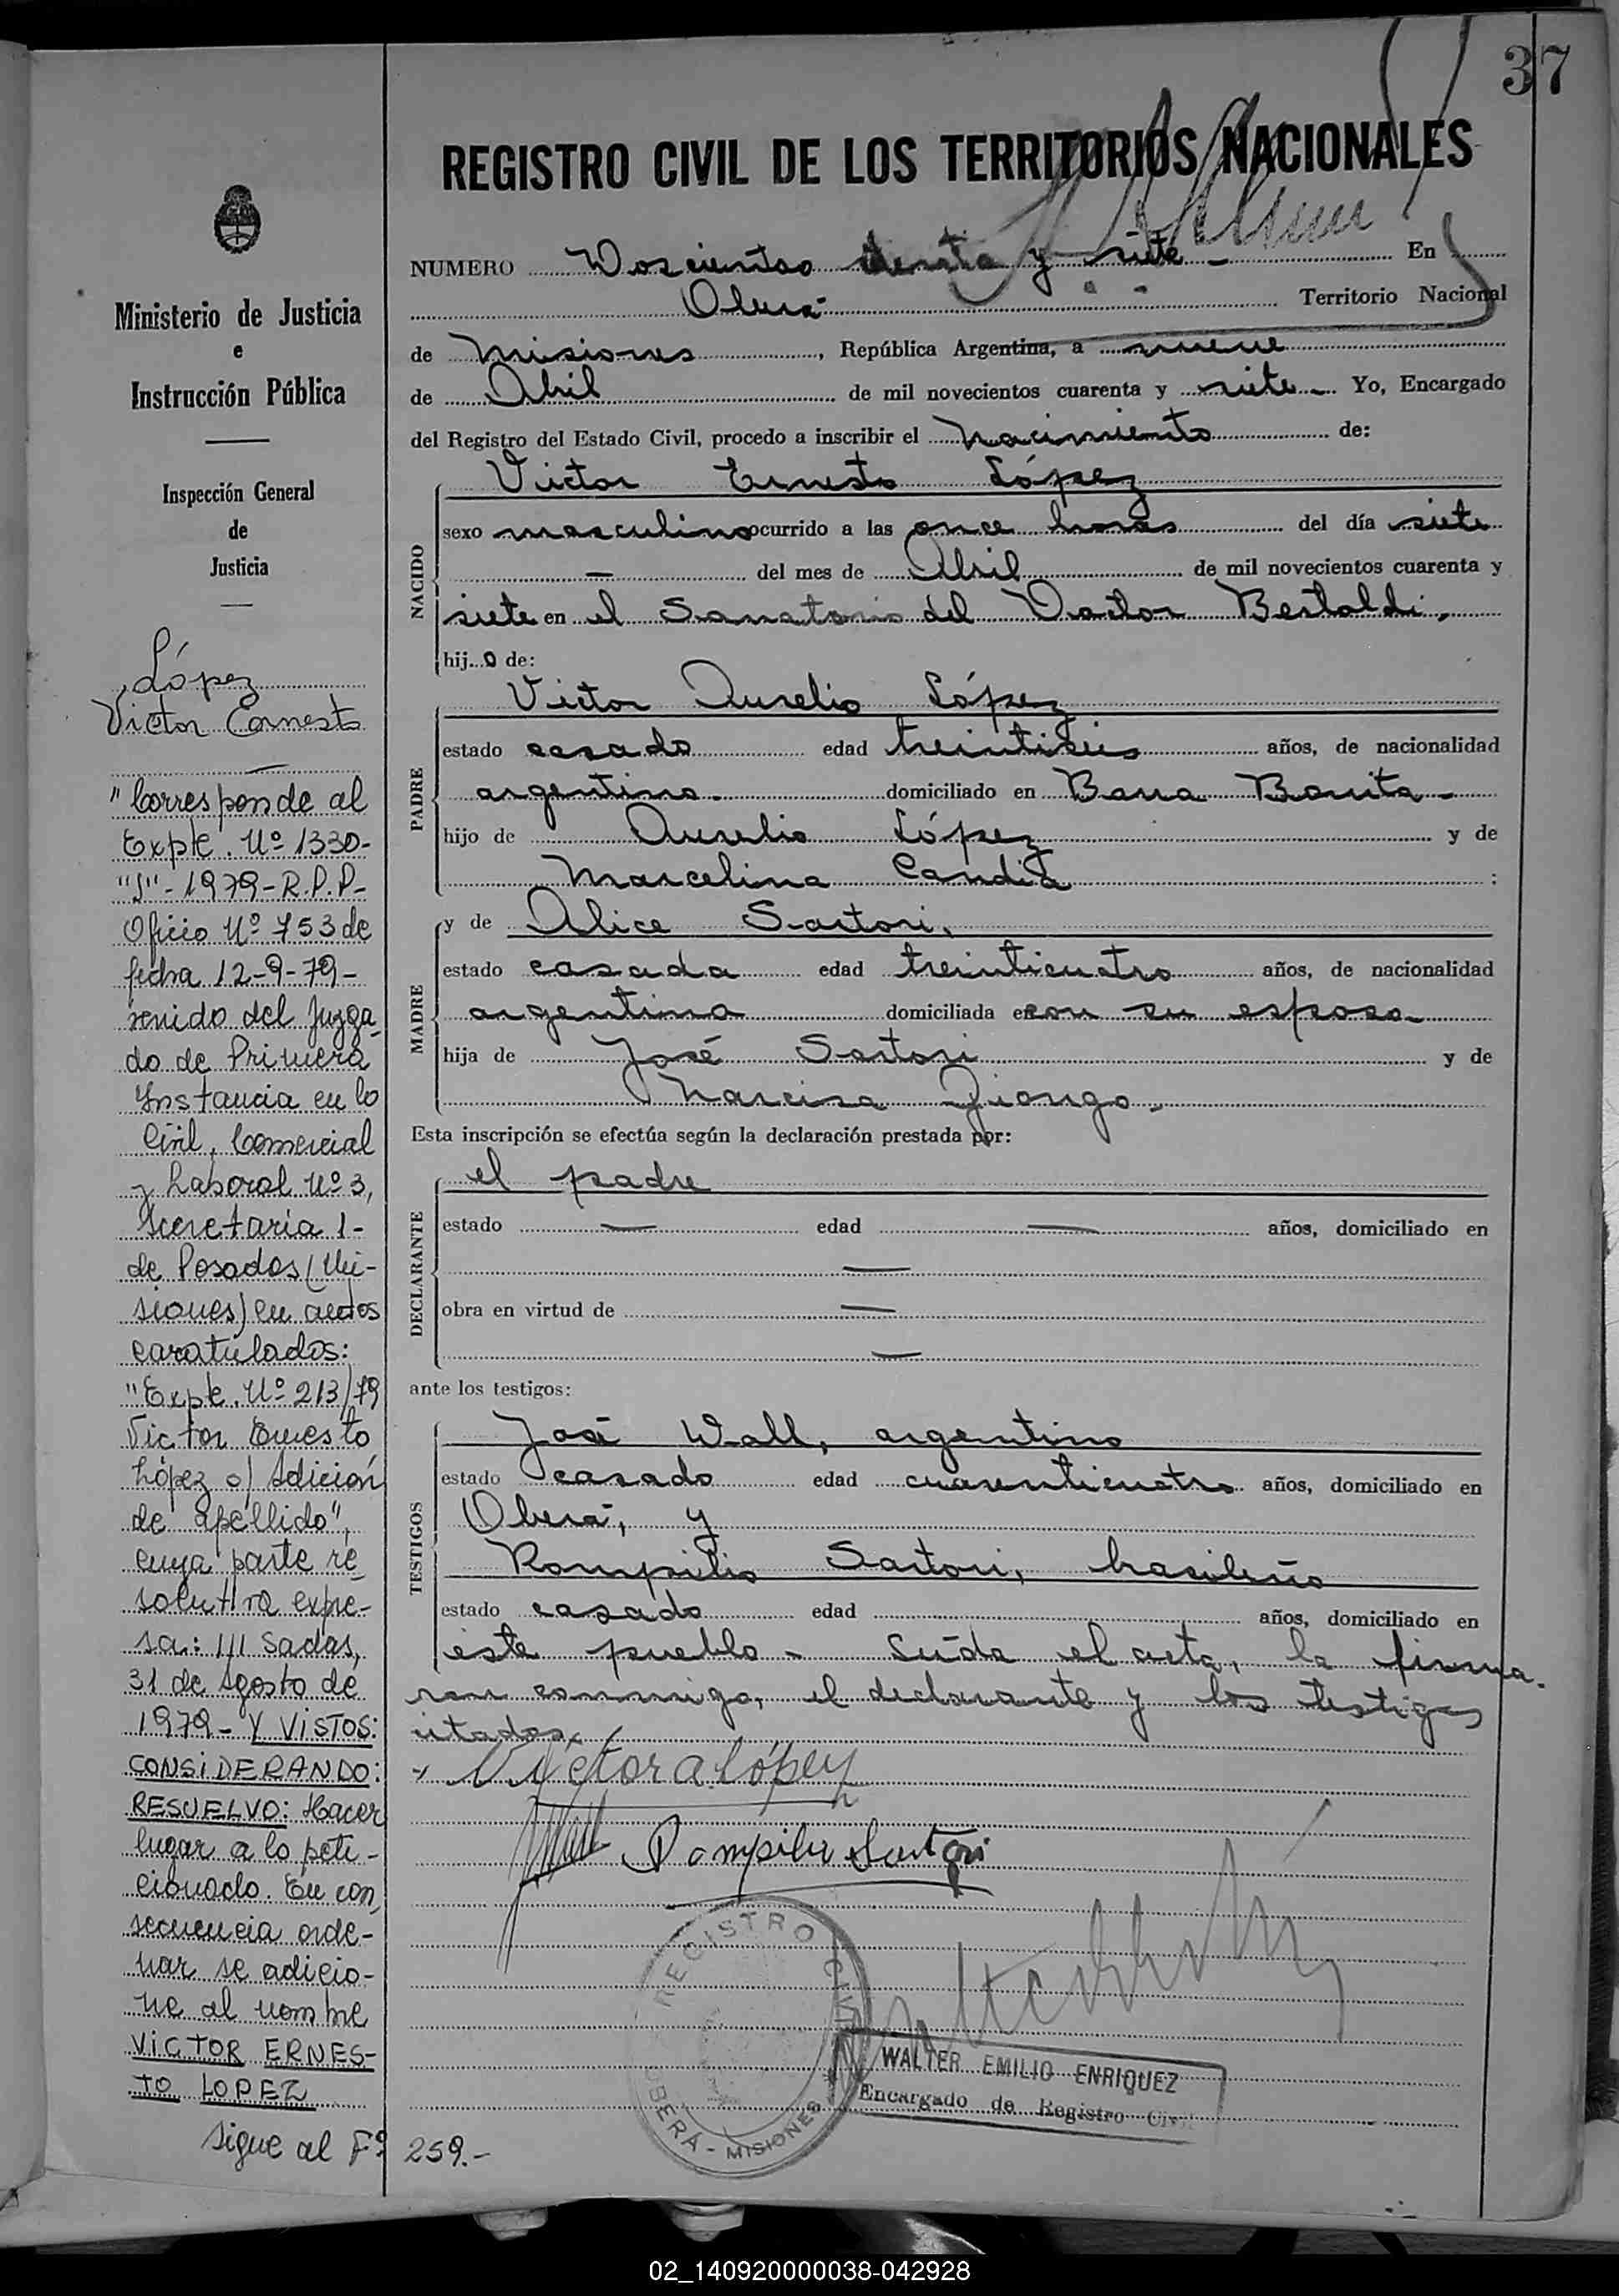 37
REGISTRO CIVIL DE LOS TERRITORIOS NACIONALES
NUMERO Doscientos treinta y siete - En
Oberá - Territorio Nacional
de Misiones, República Argentina, a nueve
de Abril de mil novecientos cuarenta y siete - Yo, Encargado
del Registro del Estado Civil, procedo a inscribir el Nacimiento de:
NACIDO
Victor Ernesto López
sexo masculino ocurrido a las once horas del día siete
- del mes de Abril de mil novecientos cuarenta y
siete en el Sanatorio del Doctor Bertoldi,
hijo de:
PADRE
Victor Aurelio López
estado casado edad treintiseis años, de nacionalidad
argentina. domiciliado en Barra Bonita -
hijo de Aurelio López y de
Marcelina Candia :
MADRE
y de Alice Sartori,
estado casada edad treinticuatro años, de nacionalidad
argentina domiciliada en con su esposo
hija de José Sartori y de
Narcisa Giongo -
Esta inscripción se efectúa según la declaración prestada por:
DECLARANTE
el padre
estado — edad — años, domiciliado en
—
obra en virtud de —
—
ante los testigos:
TESTIGOS
José Wall, argentino
estado casado edad cuarenticuatro años, domiciliado en
Oberá, y
Pompilio Sartori, brasileño
estado casado edad años, domiciliado en
este pueblo - Leída el acta, la firma-
ron conmigo, el declarante y los testigos
citados.
Víctor A López
Pompilio Sartori
REGISTRO CIVIL
OBERÁ - MISIONES
WALTER EMILIO ENRIQUEZ
Encargado de Registro Civil
Ministerio de Justicia
e
Instrucción Pública
Inspección General
de
Justicia
López
Victor Ernesto
"Corresponde al
Expte. Nº 1330-
"S"-1979-R.P.P-
Oficio Nº 753 de
fecha 12-9-79-
venido del Juzga-
do de Primera
Instancia en lo
Civil, Comercial
y Laboral Nº 3,
Secretaría 1-
de Posadas (Mi-
siones) en autos
caratulados:
"Expte. Nº 213/79
Victor Ernesto
López s/ Adición
de apellido",
cuya parte re-
solutiva expre-
sa: ///sadas,
31 de Agosto de
1979 - Y VISTOS:
CONSIDERANDO:
RESUELVO: Hacer
lugar a lo peti-
cionado. En con-
secuencia orde-
nar se adicio-
ne al nombre
VICTOR ERNES-
TO LOPEZ
Sigue al Fº 259.-
02_140920000038-042928